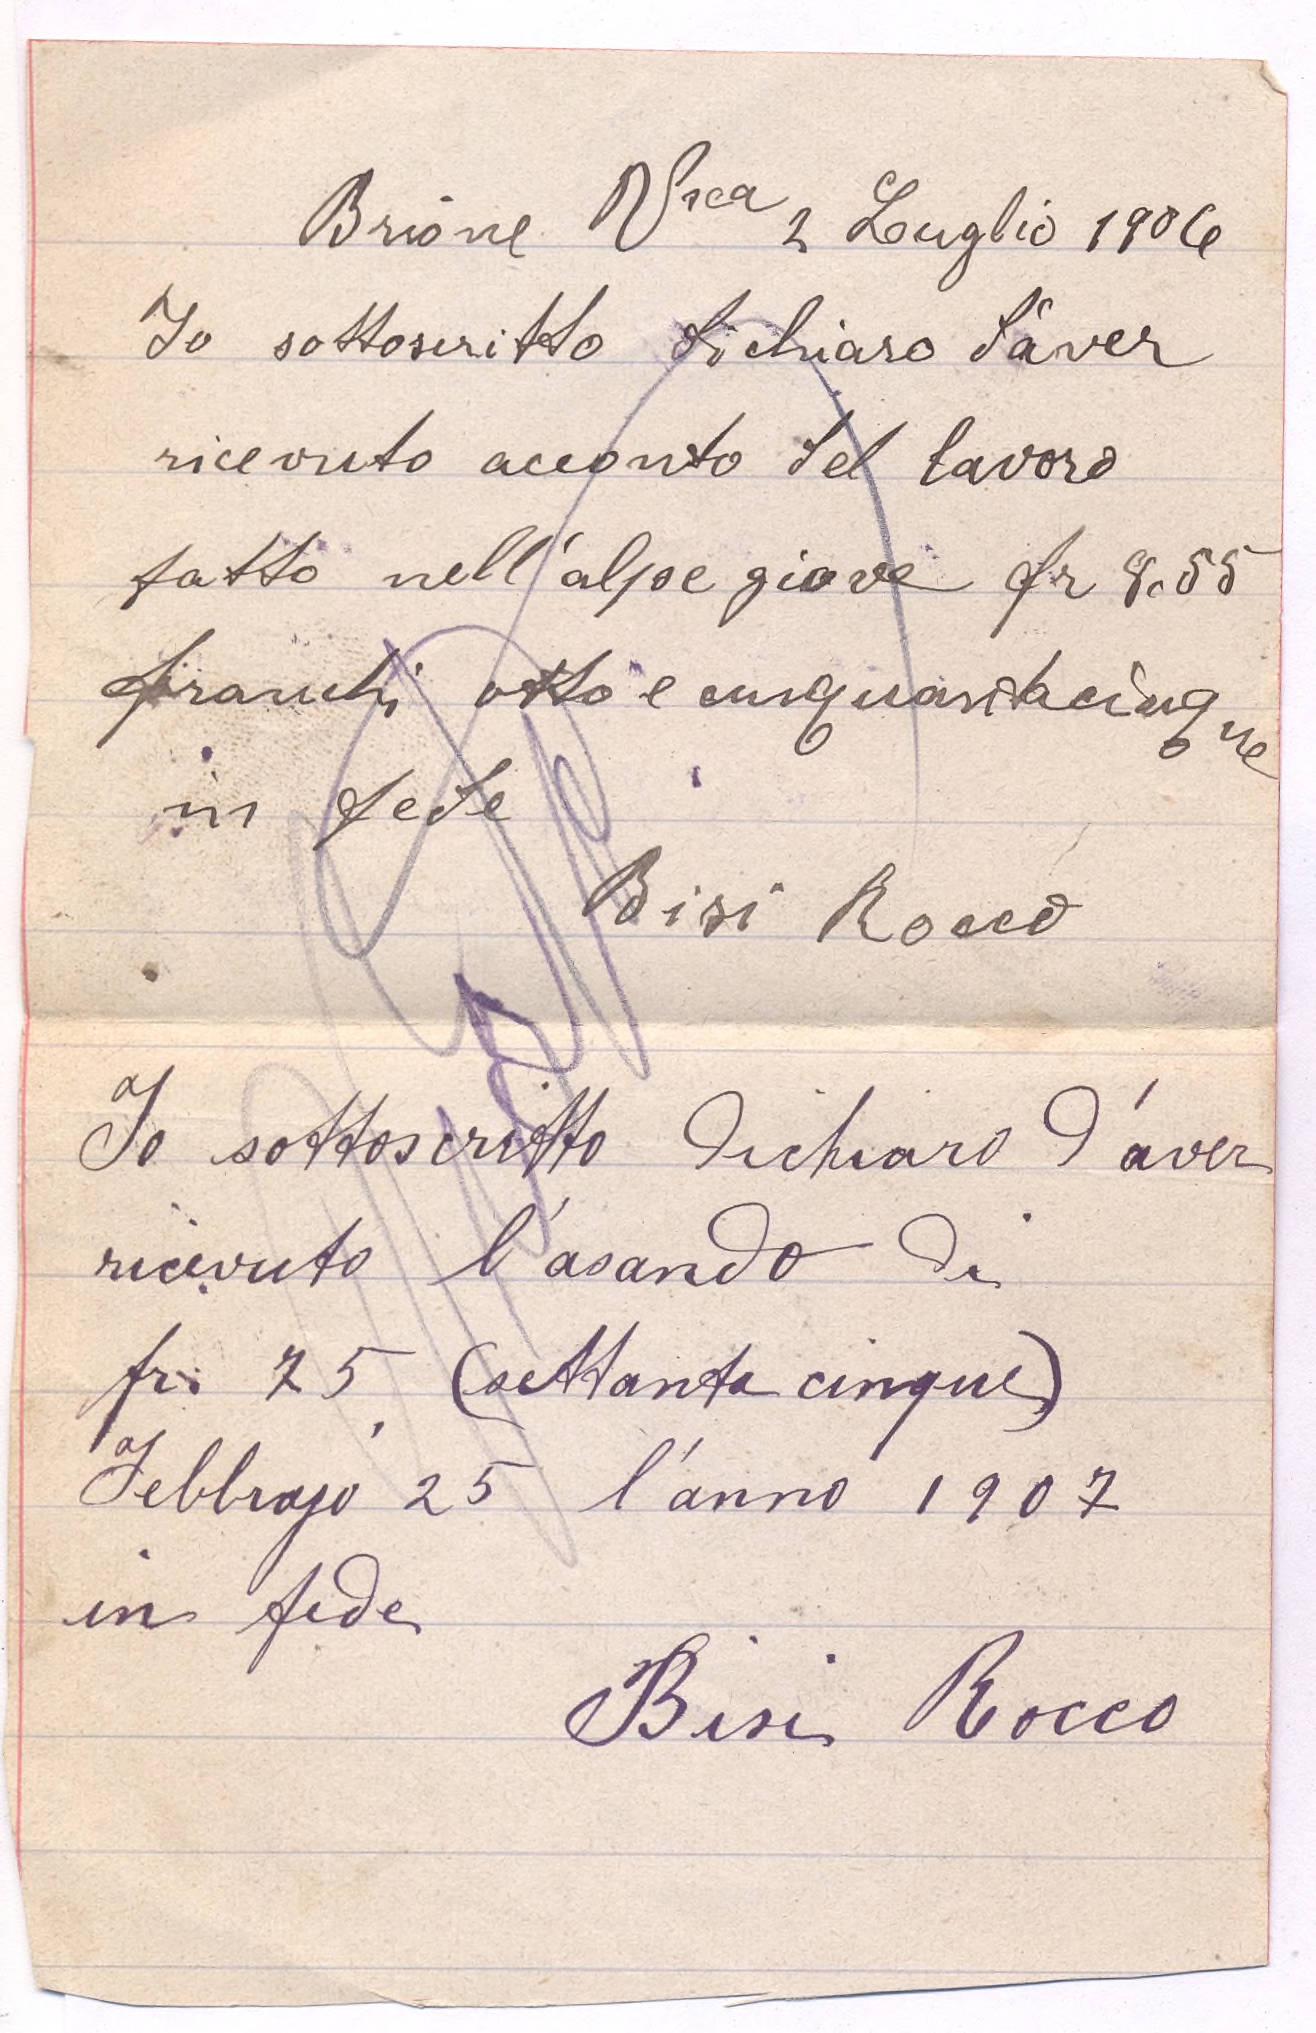 Brione Vsca 2 Luglio 1906
Io sottoscritto dichiaro d'aver
ricevuto acconto del lavoro
fatto nell'alpe giove fr 8.55
franchi otto e cinquantacinque
in fede
Bisi Rocco
Io sottoscritto dichiaro d'aver
ricevuto l'asando di
fr. 75 (settanta cinque)
Febbrajo 25 l'anno 1907
in fede
Bisi Rocco